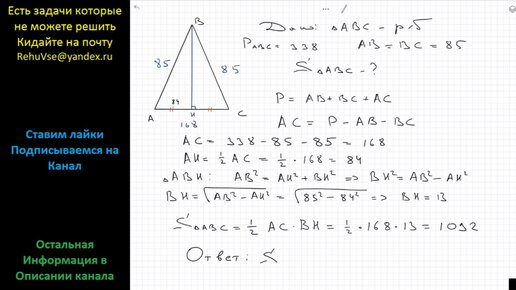 Есть задачи которые
не можете решить
Кидайте на почту
RehuVse@yandex.ru
Ставим лайки
Подписываемся на
Канал
Остальная
Информация в
Описании канала
B
85
85
84
A
H
C
168
Дано: △ABC - р/б
P ABC = 338 AB = BC = 85
S △ABC - ?
P = AB + BC + AC
AC = P - AB - BC
AC = 338 - 85 - 85 = 168
AH = 1/2 AC = 1/2 · 168 = 84
△ABH: AB² = AH² + BH² => BH² = AB² - AH²
BH = √AB² - AH² = √85² - 84² => BH = 13
S △ABC = 1/2 AC · BH = 1/2 · 168 · 13 = 1092
Ответ: S